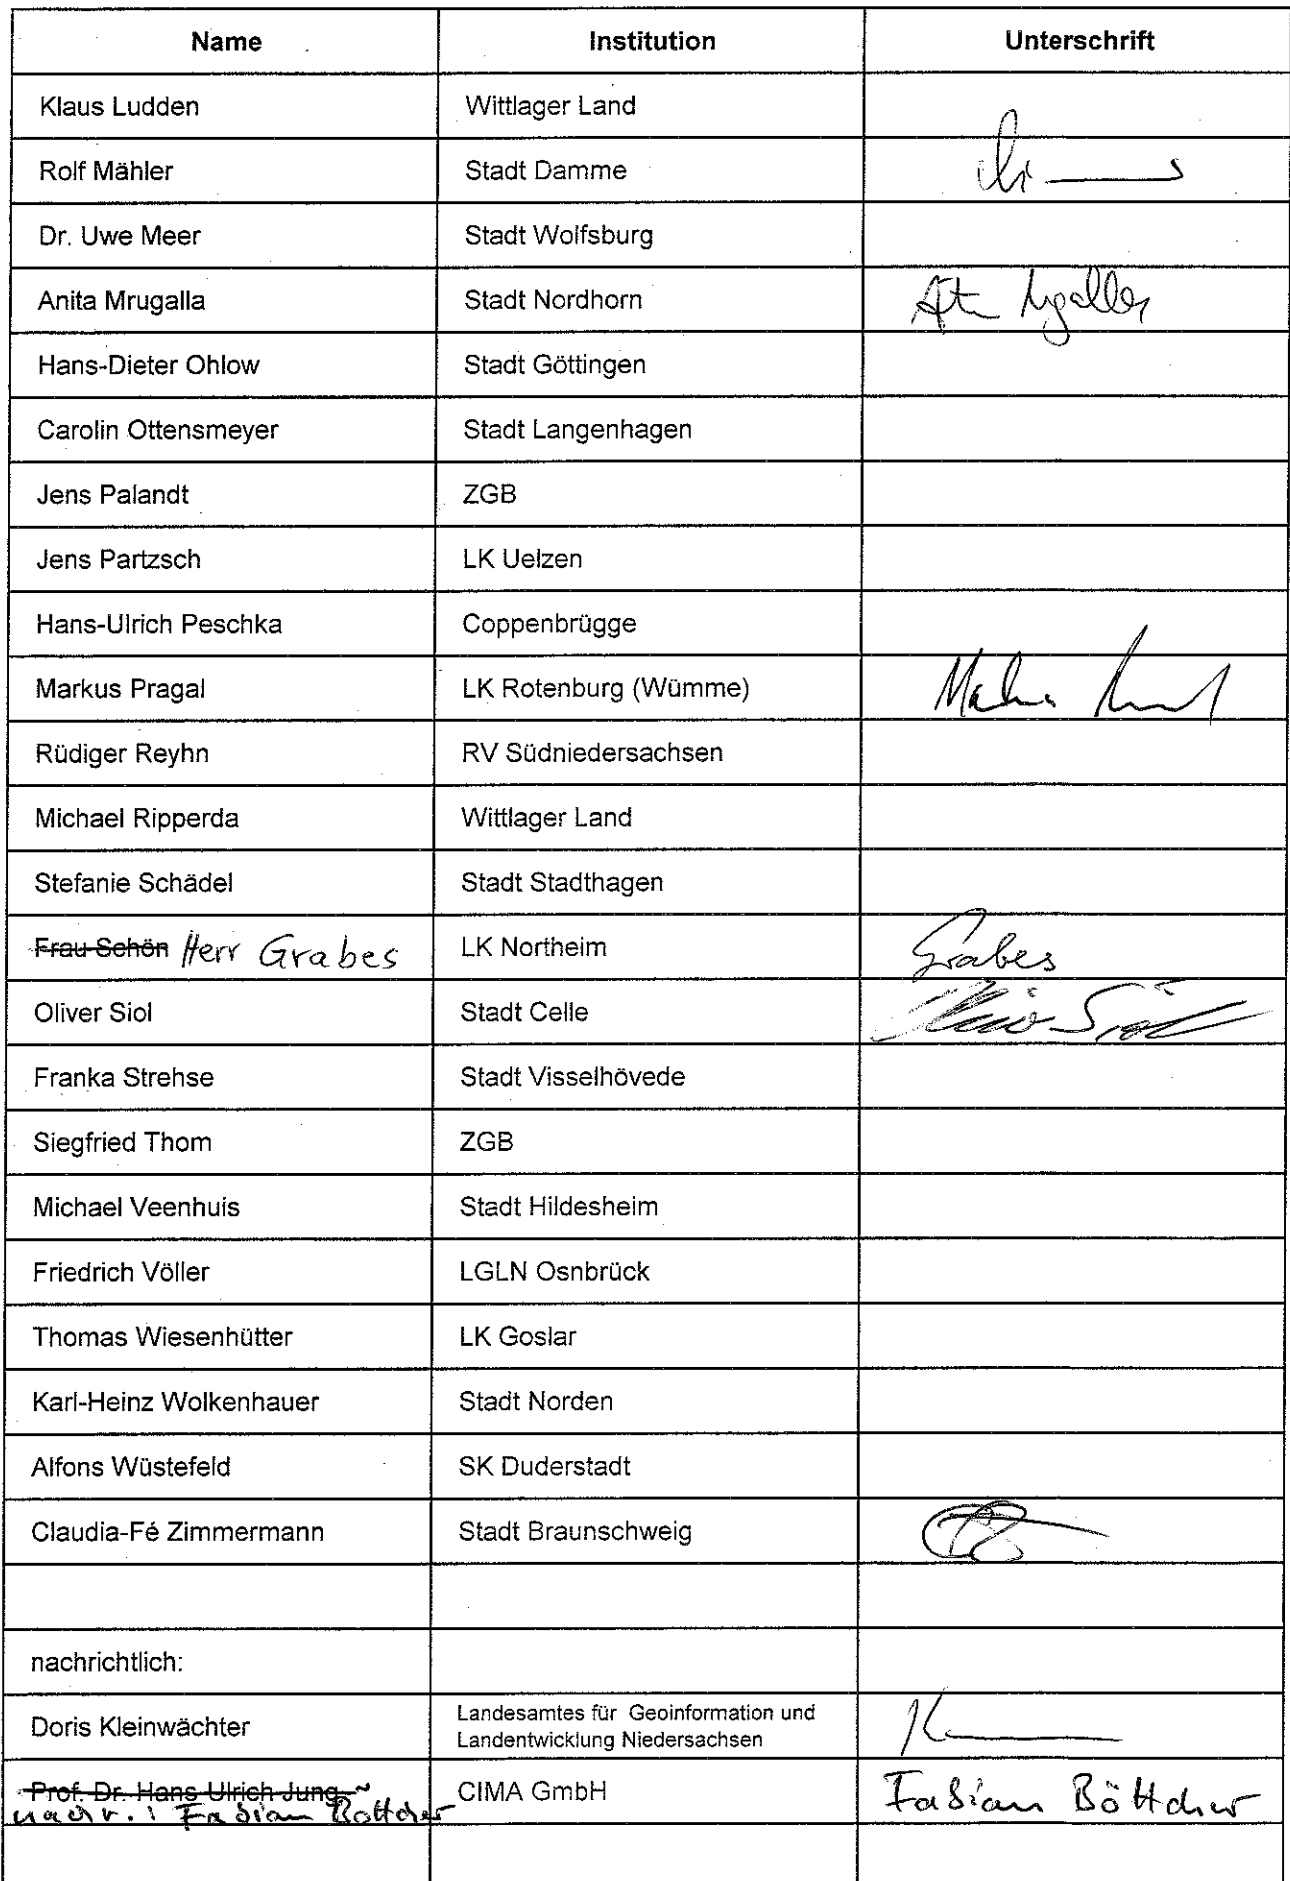 Name Institution Unterschrift
Klaus Ludden Wittlager Land
Rolf Mähler Stadt Damme
Dr. Uwe Meer Stadt Wolfsburg
Anita Mrugalla Stadt Nordhorn
Hans-Dieter Ohlow Stadt Göttingen
Carolin Ottensmeyer Stadt Langenhagen
Jens Palandt ZGB
Jens Partzsch LK Uelzen
Hans-Ulrich Peschka Coppenbrügge
Markus Pragal LK Rotenburg (Wümme)
Rüdiger Reyhn RV Südniedersachsen
Michael Ripperda Wittlager Land
Stefanie Schädel Stadt Stadthagen
Frau Schön Herr Grabes LK Northeim Grabes
Oliver Siol Stadt Celle
Franka Strehse Stadt Visselhövede
Siegfried Thom ZGB
Michael Veenhuis Stadt Hildesheim
Friedrich Völler LGLN Osnbrück
Thomas Wiesenhütter LK Goslar
Karl-Heinz Wolkenhauer Stadt Norden
Alfons Wüstefeld SK Duderstadt
Claudia-Fé Zimmermann Stadt Braunschweig
nachrichtlich:
Doris Kleinwächter Landesamtes für Geoinformation und
Landentwicklung Niedersachsen
Prof. Dr. Hans Ulrich Jung CIMA GmbH Fabian Böttcher
nachr.: Fabian Böttcher